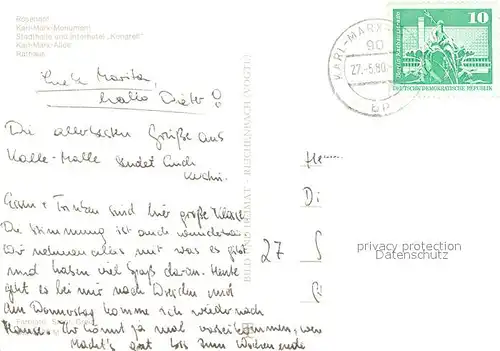 Rosenhof
Karl-Marx-Monument
Stadthalle und Interhotel „Kongreß"
Karl-Marx-Allee
Rathaus
KARL-MARX-
90
27.-5.80.-
bp
10
DEUTSCHE DEMOKRATISCHE REPUBLIK
hallo Dieter!
Die allerbesten Grüße aus
Kalle-Malle sendet Euch
Essen + Trinken sind hier große Klasse
Die Stimmung ist auch
Wir nehmen alles mit was es gibt
und haben viel Spaß daran. Heute
geht es bei mir nach Dresden und
am Donnerstag komme ich wieder nach
Hause. Ihr könnt ja mal vorbeikommen, wenn
zum Wochenende
BILD UND HEIMAT · REICHENBACH (VOGTL)
Di
27
privacy protection
Datenschutz